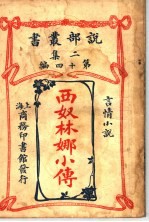 說部叢書
二集
第十四編
言情小說
西奴林娜小傳
上海商務印書館發行